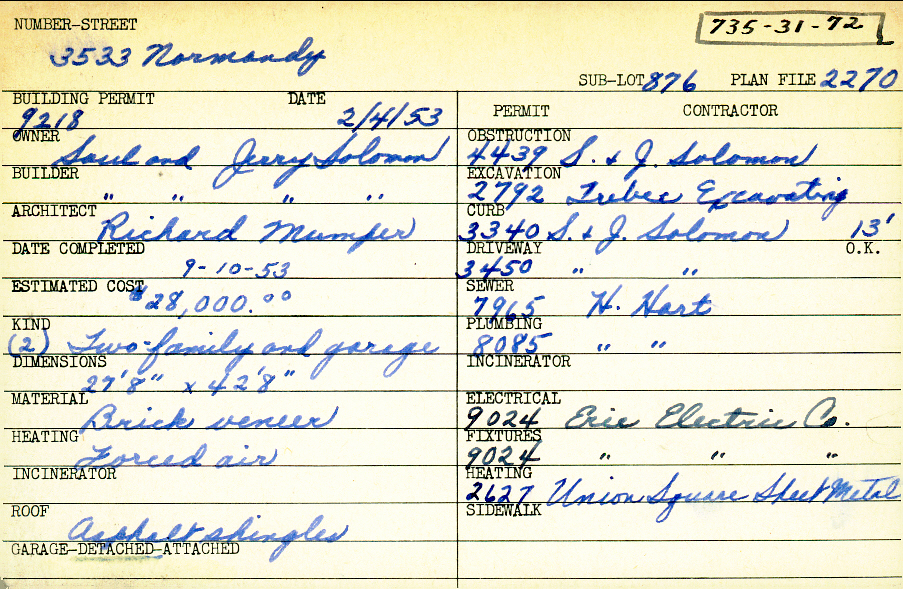 NUMBER-STREET
735-31-72
3533 Normandy
SUB-LOT 876 PLAN FILE 2270
BUILDING PERMIT DATE
9218 2/4/53
OWNER
Saul and Jerry Solomon
BUILDER
" " " "
ARCHITECT
Richard Mumper
DATE COMPLETED
9-10-53
ESTIMATED COST
$28,000.00
KIND
(2) Two-family and garage
DIMENSIONS
27'8" x 42'8"
MATERIAL
Brick veneer
HEATING
Forced air
INCINERATOR
ROOF
Asphalt shingles
GARAGE-DETACHED-ATTACHED
PERMIT CONTRACTOR
OBSTRUCTION
4439 S. & J. Solomon
EXCAVATION
2792 Trebec Excavating
CURB
3340 S. & J. Solomon 13'
DRIVEWAY O.K.
3450 " "
SEWER
7965 H. Hart
PLUMBING
8085 " "
INCINERATOR
ELECTRICAL
9024 Erie Electric Co.
FIXTURES
9024 " " "
HEATING
2627 Union Square Sheet Metal
SIDEWALK